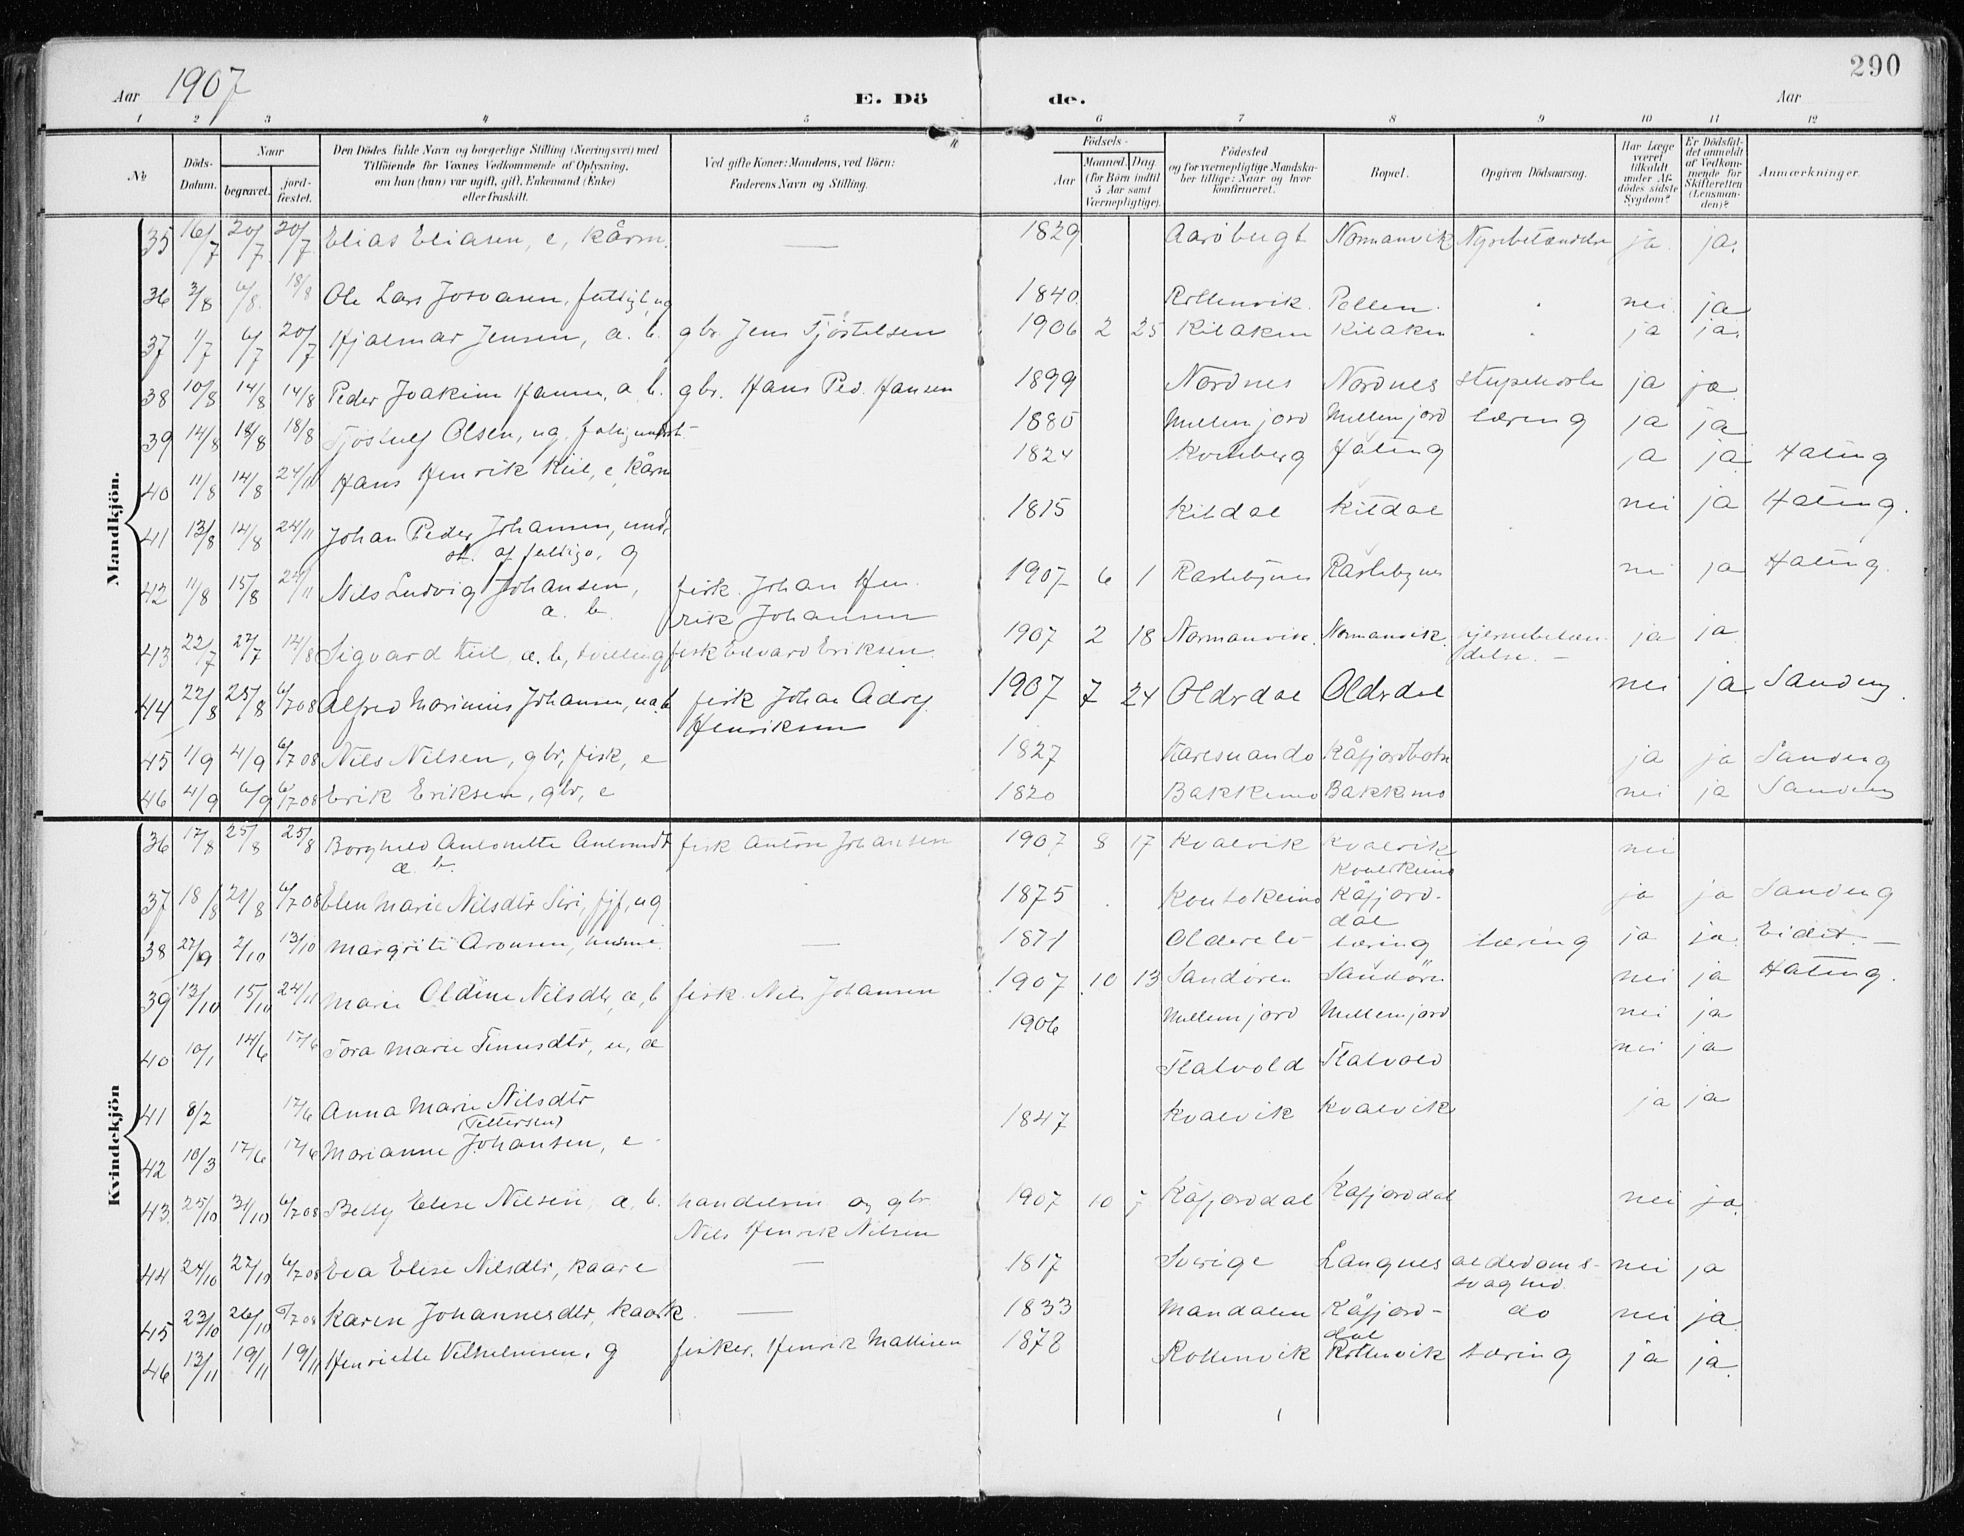 Aar 1907
E. Dö
de.
290
Aar
1 2 3 4 5 6 7 8 9 10 11 12
No
Döds-Datum.
Naar
begravet.
jord-fæstet.
Den Dödes fulde Navn og borgerlige Stilling (Næringsvei) med
Tilföiende for Voxnes Vedkommende af Oplysning,
om han (hun) var ugift, gift, Enkemand (Enke)
eller fraskilt.
Ved gifte Koner: Mandens, ved Börn:
Faderens Navn og Stilling.
Födsels-
Aar
Maaned. Dag.
(for Börn indtil
5 Aar samt
Værnepligtige).
Födested
og for værnepligtige Mandska-
ber tillige: Naar og hvor
konfirmeret.
Bopæl.
Opgiven Dödsaarsag.
Har Læge
været
tilkaldt
under Af-
dödes sidste
Sygdom?
Er Dödsfal-
det anmeldt
af Vedkom-
mende for
Skifteretten
(Lensman-
den)?
Anmærkninger.
Mandkjön.
35 16/7 20/7 20/7 Elias Eliasen, e, kårm. — 1829 Aarøbugt Normanvik Nyrebetændelse ja. ja.
36 3/8 6/8. 18/8 Ole Lars Josvasen, fattigl, ug 1840. Rottenvik. Pollen. nei ja
37 1/7 6/7 20/7 Hjalmar Jensen, æ. b. gbr. Jens Tjøstelsen 1906 2 25 Kilaken Kilaken ja ja.
38 10/8 14/8 14/8 Peder Joakim Hansen, æ. b. gbr. Hans Ped. Hansen 1899 Nordnes Nordnes ja ja.
39 14/8 18/8 18/8 Tjøstulf Olsen, ug. 1880 Mellemjord Mellemjord tæring ja ja
40 11/8 14/8 24/11 Hans Henrik Kiil, e, kårm 1824 Kvenberg ja ja Hating
41 13/8 14/8 24/11 Johan Peder Johansen, und.
st. af fattigv, g 1815 Kildal Kildal nei ja Hating.
42 11/8 15/8 24/11 Nils Ludvig Johansen,
æ. b. fisk. Johan Hen.
rik Johansen 1907 6 1 Rastebynes Rastebynes nei ja Hating.
43 22/7 27/7 14/8 Sigvard Kiil, æ. b, tvilling fisk Edvard Eriksen. 1907 2 18 Normanvik. Normanvik. hjernebetæn-
delse. — ja ja.
44 22/8 25/8 6/7 08 Alfred Marinius Johansen, u.æ.b fisk Johan Adolf
Henriksen 1907 7 24 Olderdal Olderdal nei ja Sandeng.
45 1/9 4/9 6/7 08 Nils Nilsen, gbr, fisk, e 1827 Karesuando Kåfjordbotn ja ja Sandeng
46 4/9 6/9 6/7 08 Erik Eriksen, gbr, e 1820 Bakkemo Bakkemo nei ja Sandeng
Kvindekjön
36 17/8 25/8 25/8 Borghild Antonette Antonsdt
æ. b. fisk Anton Johansen 1907 8 17 Kvalvik Kvalvik nei
37 18/8 21/8 6/7 08 Elen Marie Nilsdtr Siri, fjf, ug 1875 Koutokeino Kåfjord-
dal ja ja Sandeng
38 27/9 2/10 13/10 Margrite Aronsen, — 1871 tæring tæring ja ja.
39 13/10 15/10 24/11 Marie Oldine Nilsdtr, æ, b fisk. Nils Johansen 1907 10 13 Sandøren Sandørn nei ja Hating.
40 10/1 14/6 17/6 Tora Marie u, æ 1906 Mellemjord Mellemjord nei ja
41 8/2 17/6 Anna Marie Nilsdtr
(Pettersen) Flatvold Flatvold nei ja
42 10/3 17/6 17/6 Marianne Johansen, e 1847 Kvalvik Kvalvik ja ja
43. 25/10 31/10 6/7 08 Betty Elise Nilsen, æ, b. handelsm. og gbr.
Nils Henrik Nilsen 1907 10 Kåfjorddal Kåfjorddal nei ja.
44 24/10 27/10 6/7 08 Eva Elise Nilsdtr, kaar e — 1817 Sverige Langnes alderdoms-
svaghed. nei ja
45 23/10 26/10 6/7 08 Karen Johannesdtr, — 1833 Mandalen Kåfjord-
dal do nei ja.
46 13/11 19/11 19/11 Henriette Vilhelmsen. g fisker. Henrik Mathisen 1878 Rottenvik Rottenvik tæring ja ja.